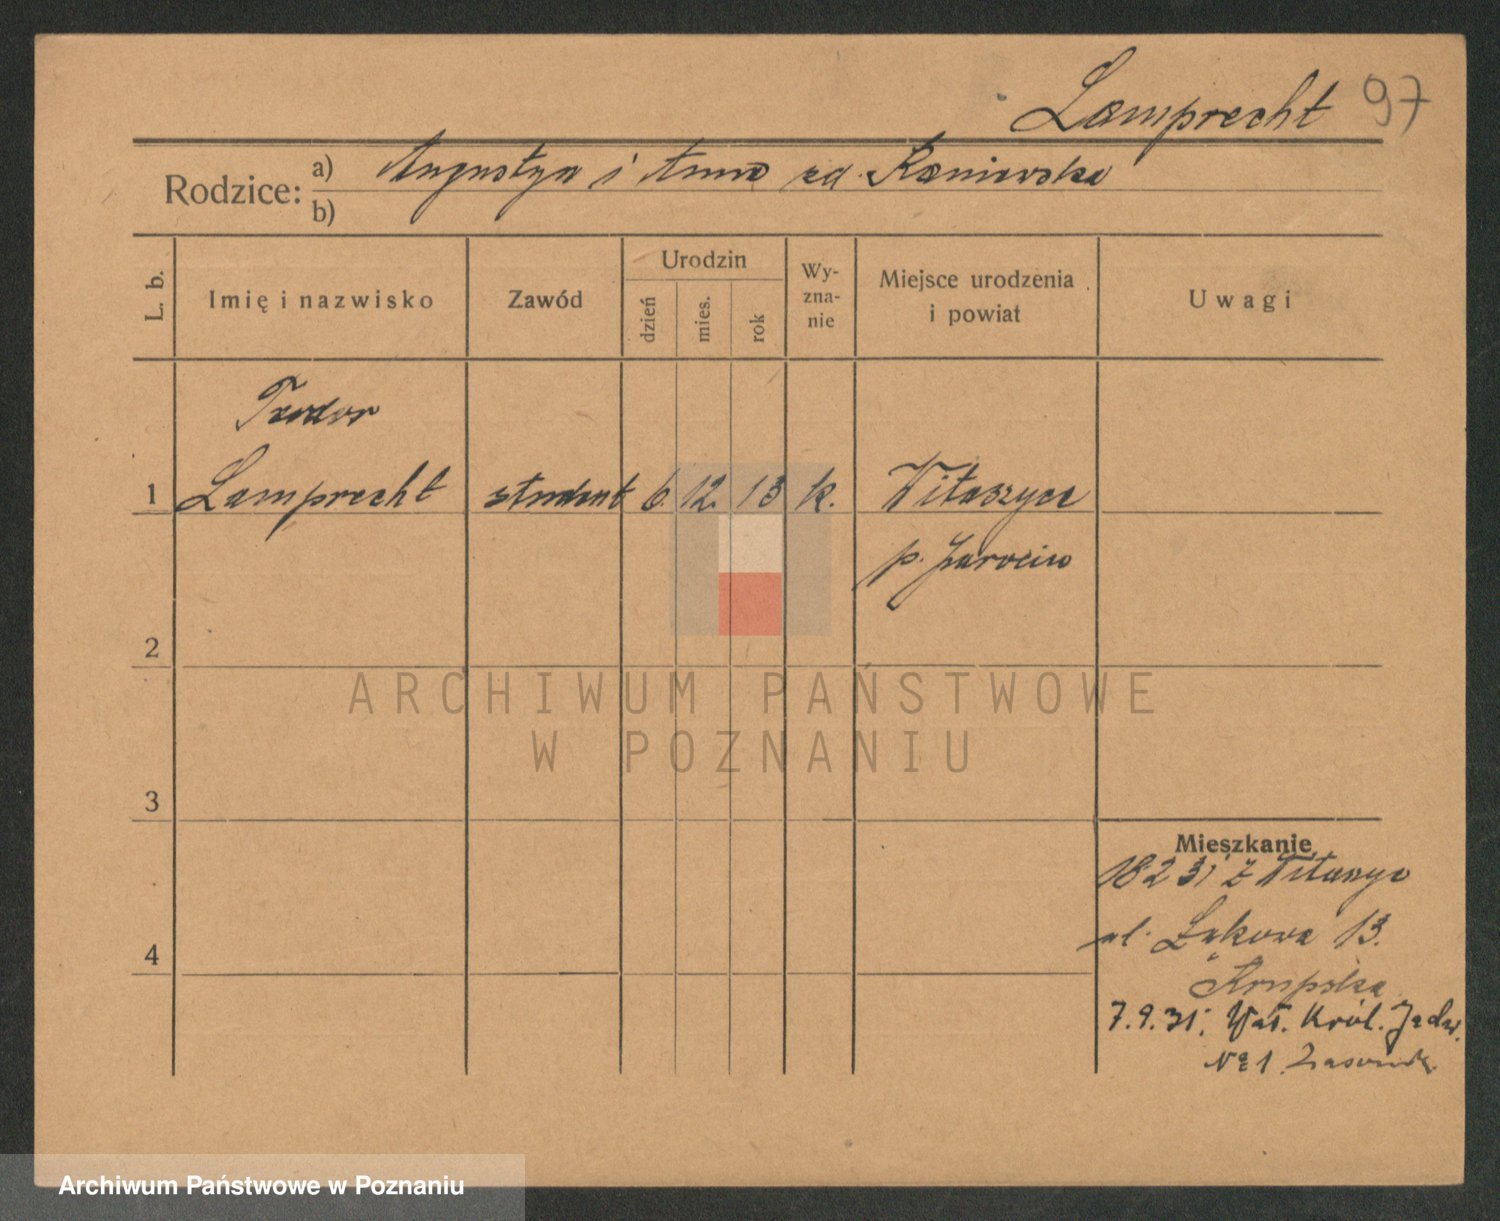 Lamprecht 97
Rodzice: a) Augustyn i Anna zd. Kaniewska
b)
L. b. Imię i nazwisko Zawód Urodzin dzień mies. rok Wy-zna-nie Miejsce urodzenia i powiat Uwagi
Teodor
1 Lamprecht student 6. 12. 13 k. Witaszyce
p. Jarocin
2
ARCHIWUM PAŃSTWOWE
W POZNANIU
3
Mieszkanie
18 2 31 z Witaszyc
ul. Łąkowa 13.
4
Krupska
7.9.31. Wał. Król. Jadw.
№ 1
Archiwum Państwowe w Poznaniu